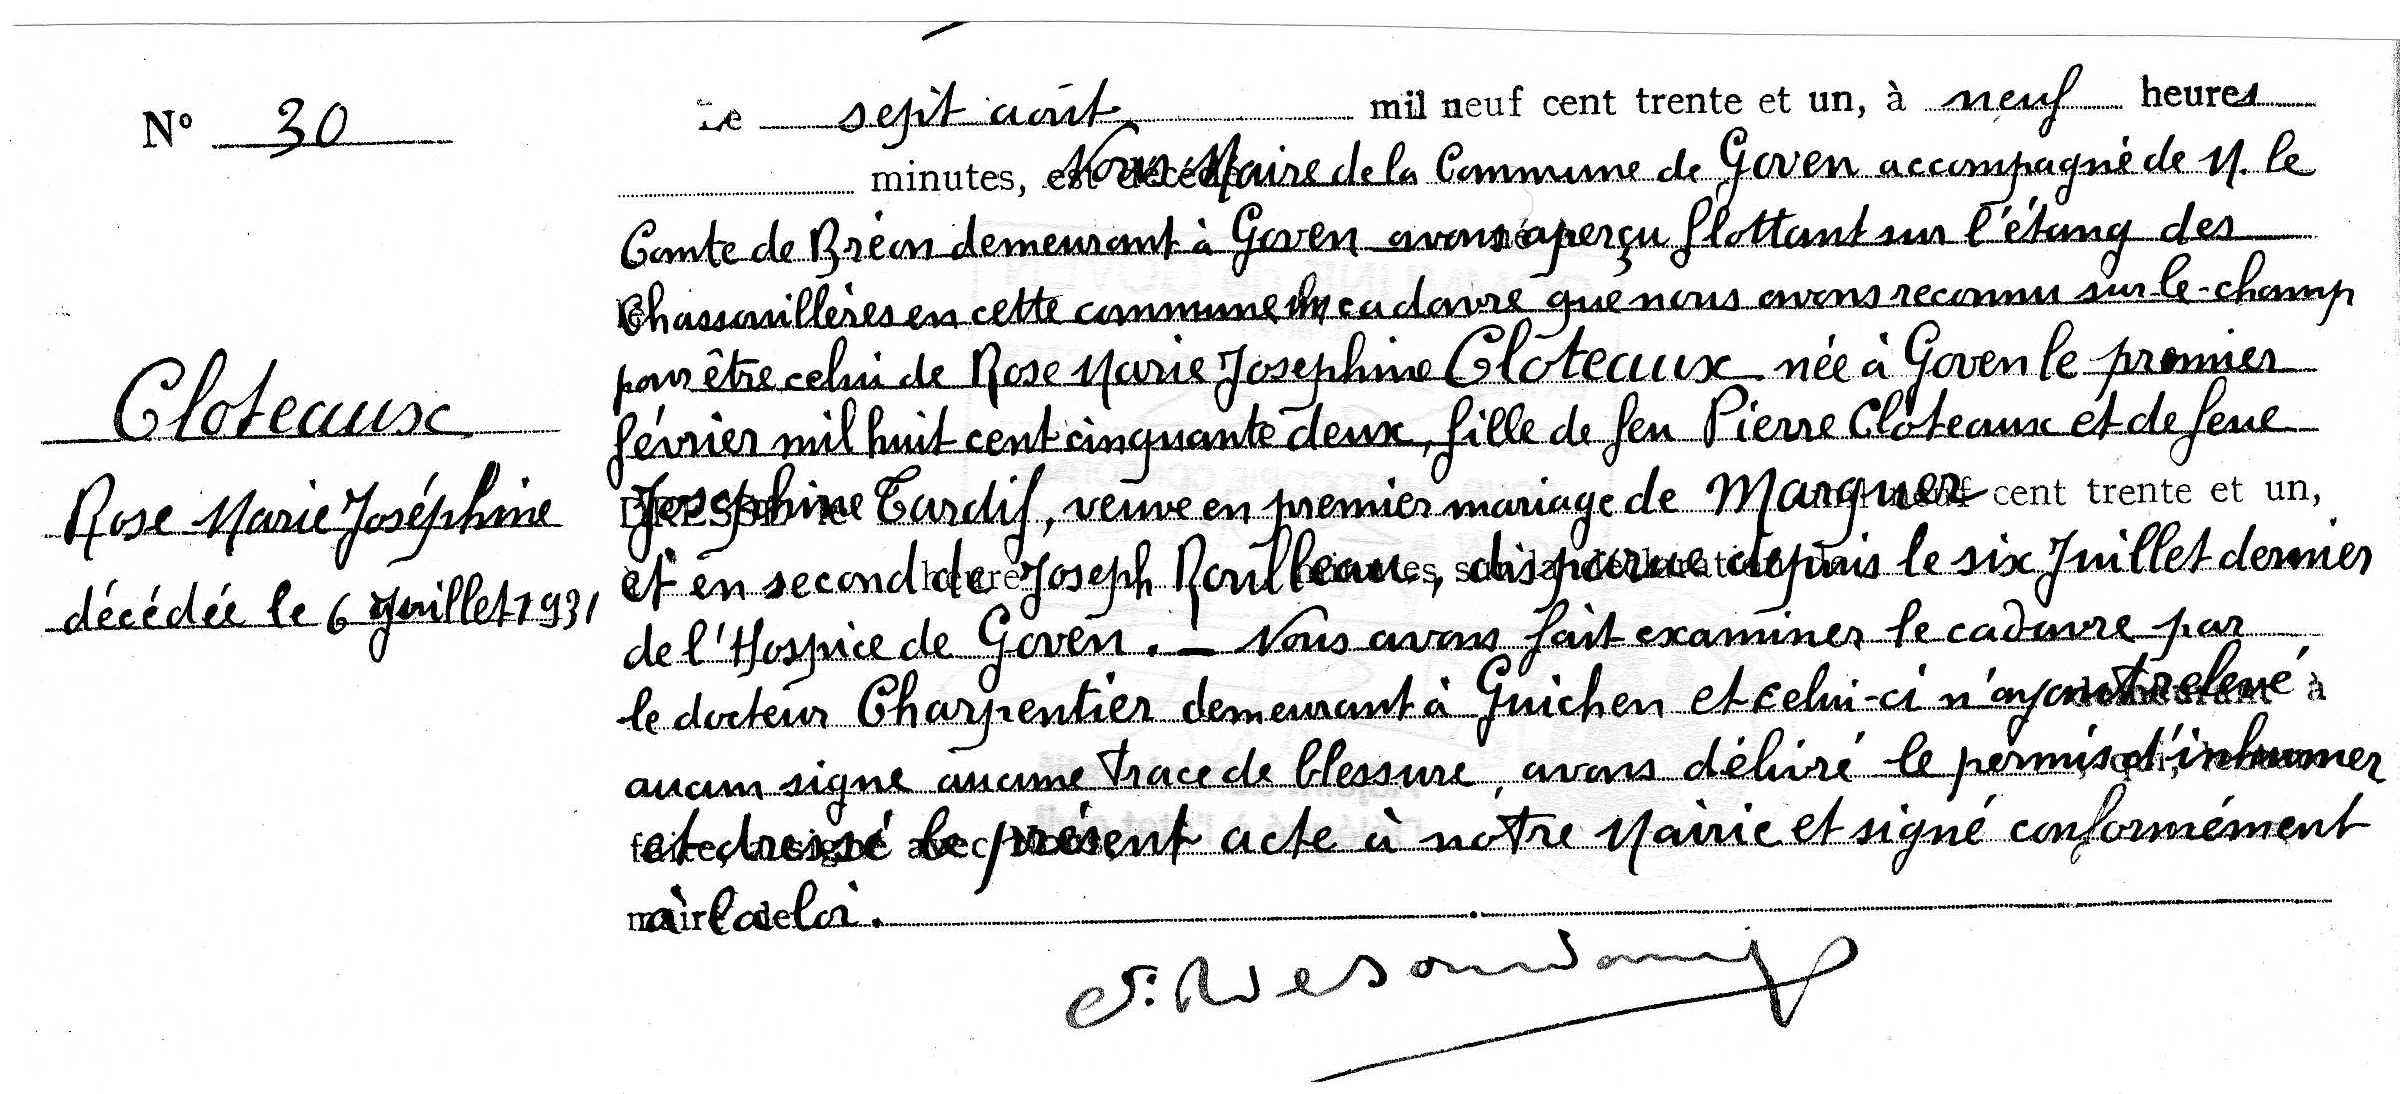 N° 30
Le sept août mil neuf cent trente et un, à neuf heures
minutes, est décédé Nous Maire de la Commune de Goven accompagné de M. le
Comte de Bréon demeurant à Goven avons aperçu flottant sur l'étang des
Chassouillères en cette commune un cadavre que nous avons reconnu sur-le-champ
pour être celui de Rose Marie Josephine Cloteaux née à Goven le premier
février mil huit cent cinquante deux, fille de feu Pierre Cloteaux et de feue
Josephine Tardif, veuve en premier mariage de Marquer cent trente et un,
et en second de Joseph Roulleau, disparue depuis le six Juillet dernier
de l'Hospice de Goven. — Nous avons fait examiner le cadavre par
le docteur Charpentier demeurant à Guichen et celui-ci n'ayant relevé à
aucun signe aucune trace de blessure, avons délivré le permis d'inhumer
et dressé le présent acte à notre Mairie et signé conformément
à la loi.
Cloteaux
Rose Marie Joséphine
décédée le 6 Juillet 1931